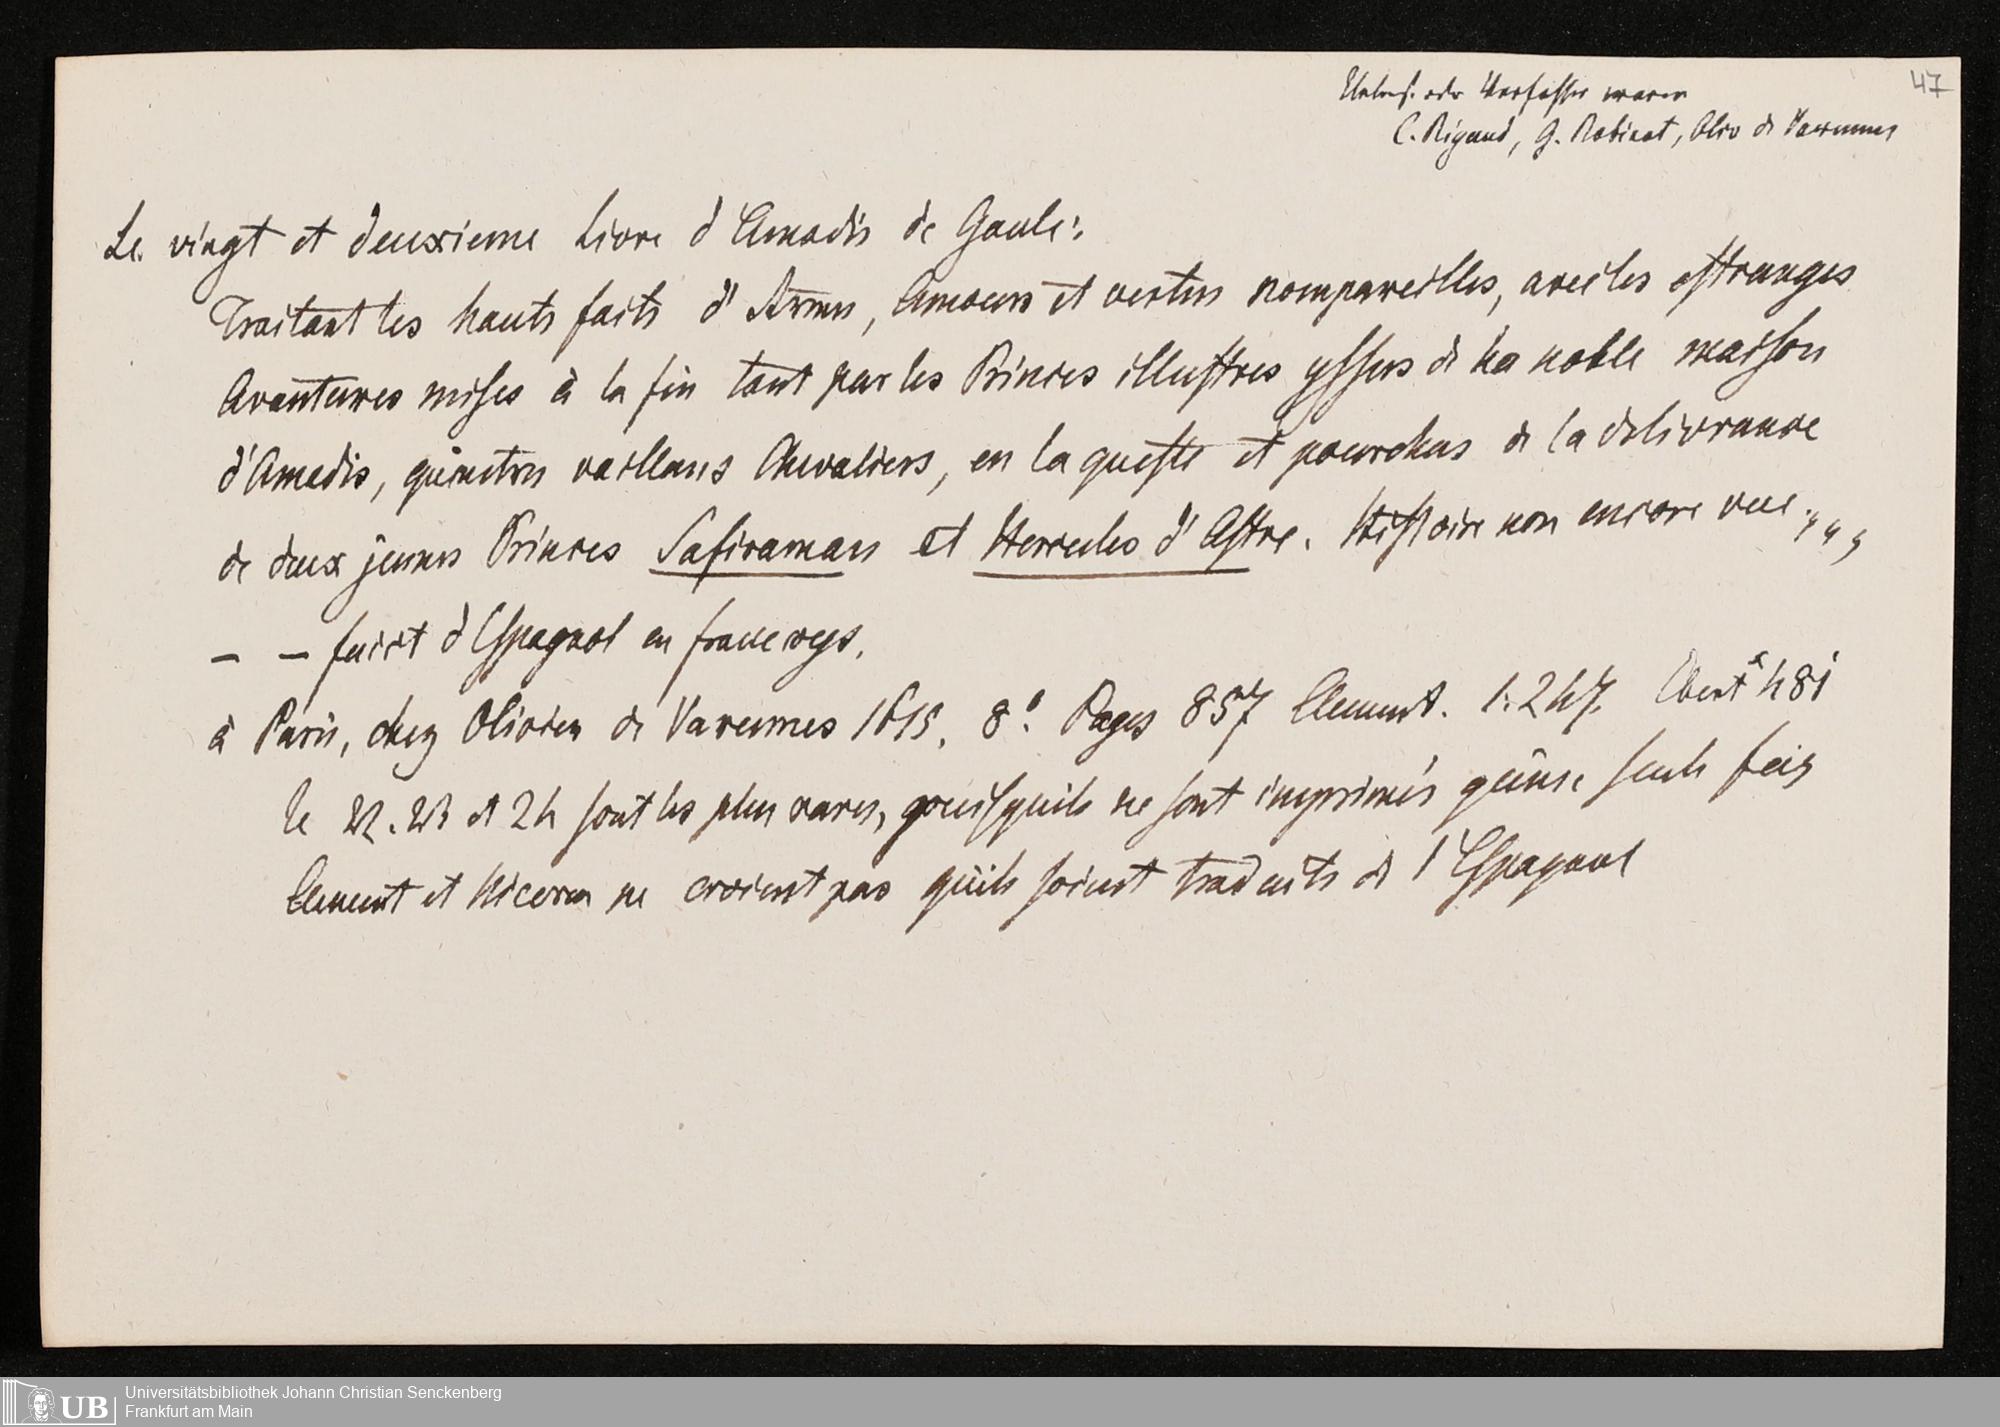 47
Uebers. oder Verfasser waren
C. Rigaud, G. Robinot, Oliv de Varennes
Le vingt et deuxieme Livre d'Amadis de Gaule:
Traitant les hauts faits d'Armes, Amours et vertus nompareilles, avec les estranges
Avantures mises à la fin tant par les Princes illustres yssus de la noble maison
d'Amadis, qu'autres vaillans Chevaliers, en la queste et pourchas de la delivrance
de deux jeunes Princes Safiraman et Hercules d'Astre. Histoire non encore vue
– – faict d'Espagnol en françoys.
à Paris, chez Olivier de Varennes 1615. 8°. Pages 857 Clement. 1.247. Ebert 481
le 22. 23 et 24 sont les plus rares, puisqu'ils ne sont imprimés qu'une seule fois
Clement et Niceron ne croient pas qu'ils soient traduits de l'Espagnol
UB
Universitätsbibliothek Johann Christian Senckenberg
Frankfurt am Main